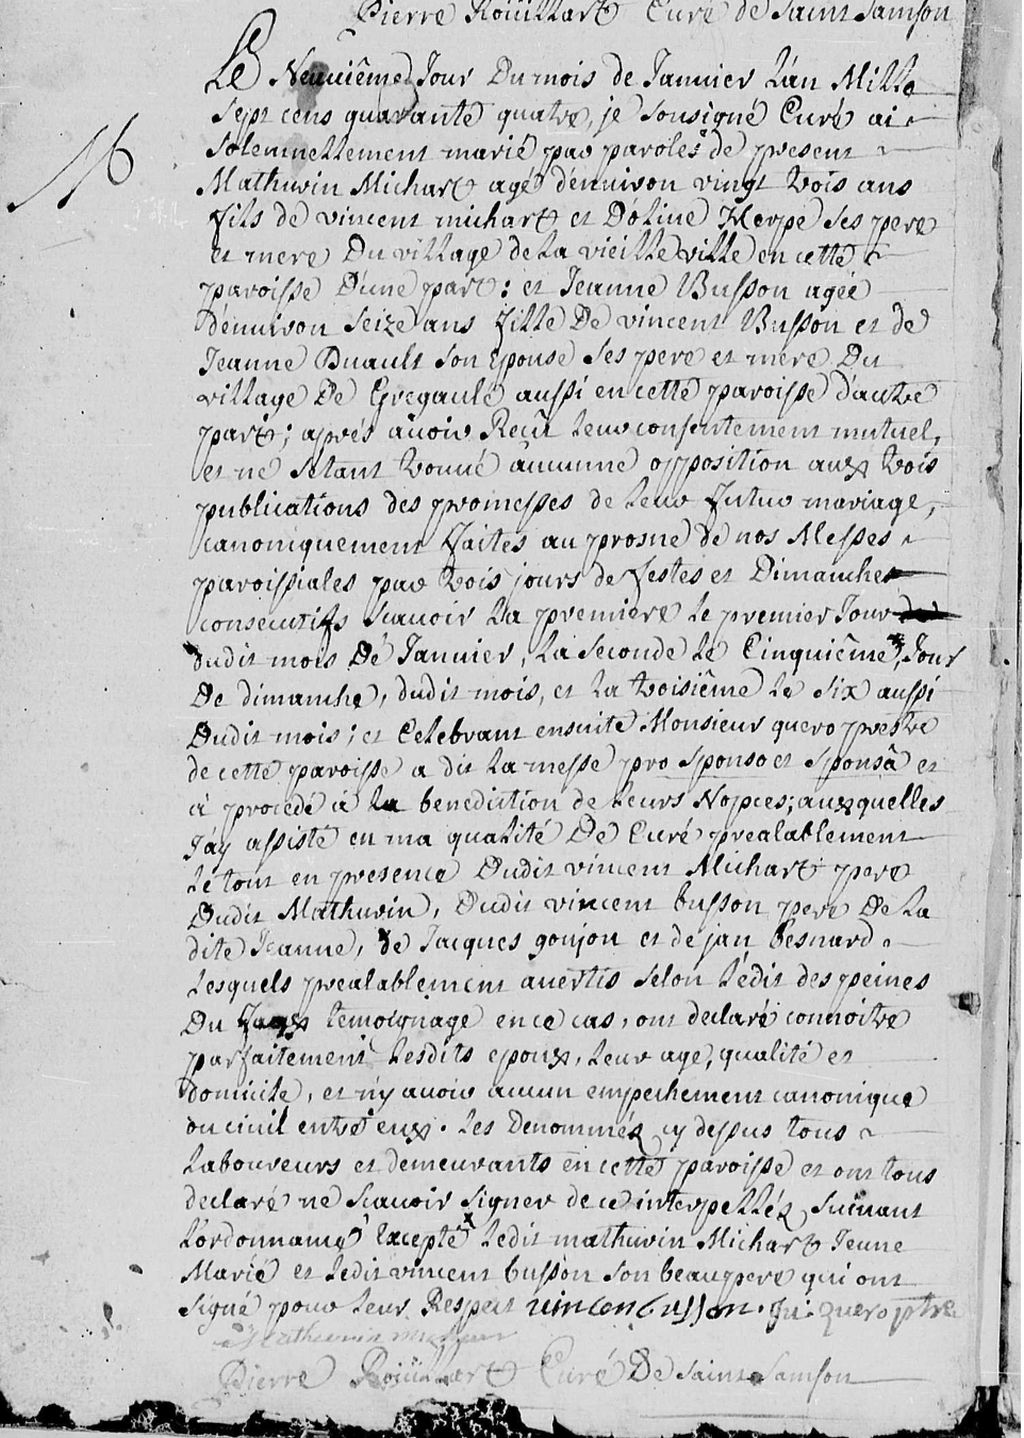 Pierre Roüillart Curé de Saint Samson
M
Le Neuuiême Jour Du mois de Januier L'an Mille
sept cens quarante quatre, je sousigné Curé ai
solemnellement marié par paroles de present
Mathurin Michart agé d'enuiron vingt trois ans
fils de vincent michart et D'oliue Herpe ses pere
et mere Du village de la vieille ville en cette
paroisse D'une part: et Jeanne Busson agée
d'enuiron seize ans fille De vincent Busson et de
Jeanne Duault son epouse ses pere et mere Du
village De Gregaule aussi en cette paroisse d'autre
part; aprés auoir Reçû leur consentement mutuel,
et ne s'etant trouué aucunne opposition aux trois
publications des promesses de leur futur mariage,
canoniquement faites au prosne de nos Messes
paroissiales par trois jours de festes et Dimanches
consecutifs scauoir la premiere le premier Jour
dudit mois De Januier, la seconde le Cinquiême, Jour
De dimanche, dudit mois, et la troisiême le six aussi
Dudit mois; et Celebrant ensuite Monsieur quero prestre
de cette paroisse a dit la messe pro sponso et sponsâ et
à procedé à la benediction de leurs Nopces; auxquelles
J'ay assisté en ma qualité De Curé prealablement
Le tout en presence Dudit vincent Michart pere
Dudit Mathurin, Dudit vincent busson pere De la
dite Jeanne, de Jacques goujon et de jan besnard
Lesquels prealablement auertis selon l'edit des peines
Du faux temoignage en ce cas, ont declaré connoitre
parfaitement lesdits epoux, leur age, qualité et
domicile, et n'y auoir aucun empechement canonique
ou ciuil entre eux. Les Denommés cy dessus tous
Laboureurs et demeurants en cette paroisse et ont tous
declaré ne scauoir signer de ce interpellés, suiuant
L'ordonnance excepté ledit mathurin Michart Jeune
Marié et ledit vincent busson son beaupere qui ont
signé pour leur Respect vincen busson. Quero ptre
Mathurin
Pierre Roüillart Curé De Saint Samson